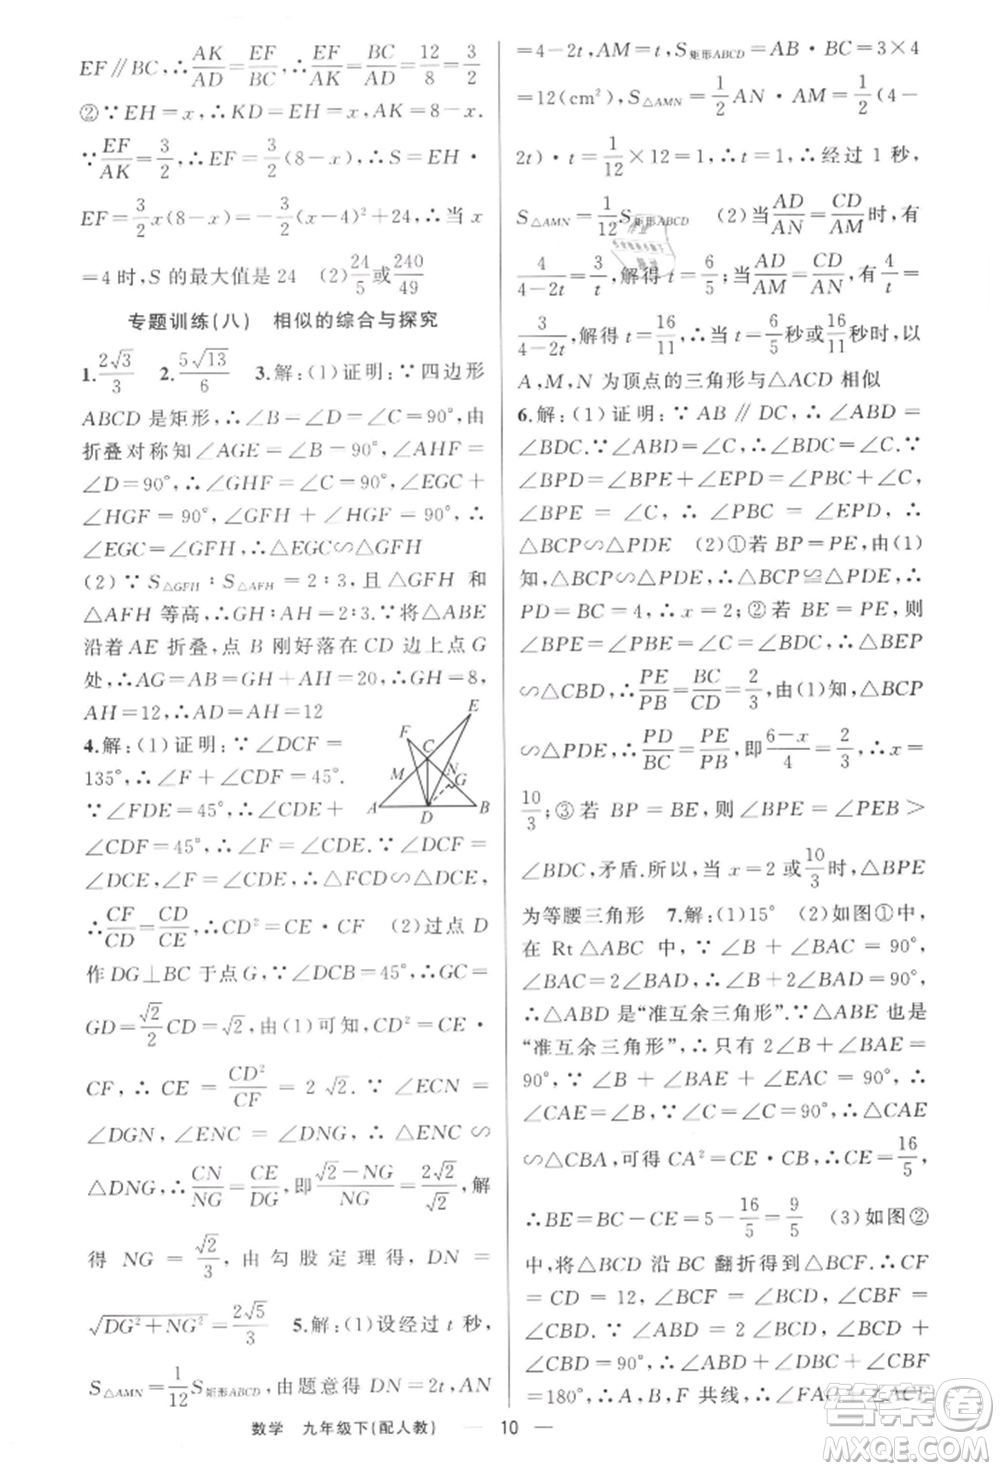 EF∥BC,∴AK/AD=EF/BC,∴EF/AK=BC/AD=12/8=3/2
②∵EH=x,∴KD=EH=x,AK=8-x.
∵EF/AK=3/2,∴EF=3/2(8-x),∴S=EH·
EF=3/2x(8-x)=-3/2(x-4)²+24,∴当x
=4时,S的最大值是24 (2)24/5或240/49
专题训练(八) 相似的综合与探究
1.2√3/3 2.5√13/6 3.解:(1)证明:∵四边形
ABCD是矩形,∴∠B=∠D=∠C=90°,由
折叠对称知∠AGE=∠B=90°,∠AHF=
∠D=90°,∴∠GHF=∠C=90°,∠EGC+
∠HGF=90°,∠GFH+∠HGF=90°,∴
∠EGC=∠GFH,∴△EGC∽△GFH
(2)∵S△GFH∶S△AFH=2∶3,且△GFH和
△AFH等高,∴GH∶AH=2∶3.∵将△ABE
沿着AE折叠,点B刚好落在CD边上点G
处,∴AG=AB=GH+AH=20,∴GH=8,
AH=12,∴AD=AH=12
4.解:(1)证明:∵∠DCF=
135°,∴∠F+∠CDF=45°.
∵∠FDE=45°,∴∠CDE+
∠CDF=45°,∴∠F=∠CDE.∵∠DCF=
∠DCE,∠F=∠CDE,∴△FCD∽△DCE,
∴CF/CD=CD/CE,∴CD²=CE·CF (2)过点D
作DG⊥BC于点G,∵∠DCB=45°,∴GC=
GD=√2/2CD=√2,由(1)可知,CD²=CE·
CF,∴CE=CD²/CF=2√2.∵∠ECN=
∠DGN,∠ENC=∠DNG,∴△ENC∽
△DNG,∴CN/NG=CE/DG,即(√2-NG)/NG=2√2/√2,解
得NG=√2/3,由勾股定理得,DN=
√(DG²+NG²)=2√5/3 5.解:(1)设经过t秒,
S△AMN=1/12S矩形ABCD,由题意得DN=2t,AN
=4-2t,AM=t,S矩形ABCD=AB·BC=3×4
=12(cm²),S△AMN=1/2AN·AM=1/2(4-
2t)·t=1/12×12=1;∴t=1;∴经过1秒,
S△AMN=1/12S矩形ABCD (2)当AD/AN=CD/AM时,有
4/(4-2t)=3/t,解得t=6/5;当AD/AM=CD/AN,∴4/t=
3/(4-2t),解得t=16/11,∴当t=6/5秒或16/11秒时,以
A,M,N为顶点的三角形与△ACD相似
6.解:(1)证明:∵AB∥DC,∴∠ABD=
∠BDC.∵∠ABD=∠C,∴∠BDC=∠C.
∵∠BPD=∠BPE+∠EPD=∠PBC+∠C,
∠BPE=∠C,∴∠PBC=∠EPD,∴
△BCP∽△PDE (2)①若BP=PE,由(1)
知,△BCP∽△PDE,∴△BCP≌△PDE,∴
PD=BC=4,∴x=2;②若BE=PE,则
∠BPE=∠PBE=∠C=∠BDC,∴△BEP
∽△CBD,∴PE/PB=BC/CD=2/3,由(1)知,△BCP
∽△PDE,∴PD/BC=PE/PB,即(6-x)/4=2/3,∴x=
10/3;③若BP=BE,则∠BPE=∠PEB>
∠BDC,矛盾.所以,当x=2或10/3时,△BPE
为等腰三角形 7.解:(1)15° (2)如图①中,
在Rt△ABC中,∵∠B+∠BAC=90°,
∠BAC=2∠BAD,∴∠B+2∠BAD=90°,
∴△ABD是“准互余三角形”.∵△ABE也是
“准互余三角形”,∴只有2∠B+∠BAE=
90°.∵∠B+∠BAE+∠EAC=90°,∴
∠CAE=∠B.∵∠C=∠C=90°,∴△CAE
∽△CBA,可得CA²=CE·CB,∴CE=16/5,
∴BE=BC-CE=5-16/5=9/5 (3)如图②
中,将△BCD沿BC翻折得到△BCF.∴CF
=CD=12,∠BCF=∠BCD,∠CBF=
∠CBD.∵∠ABD=2∠BCD,∠BCD+
∠CBD=90°,∴∠ABD+∠DBC+∠CBF
=180°,∴A,B,F共线,∴∠A+∠ACF=
A
B
C
D
E
F
G
M
N
数学 九年级下(配人教) — 10 —
答案圈
MXQE.COM